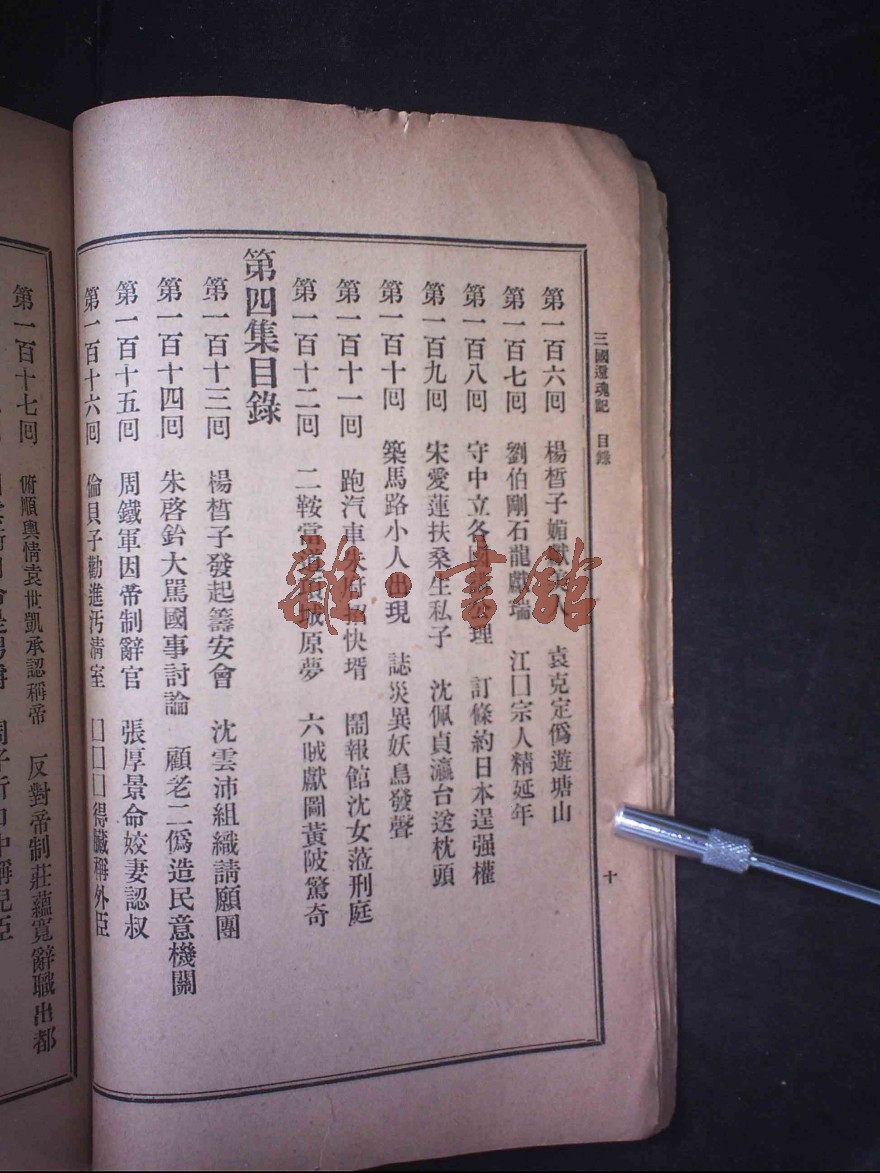 三國還魂記　目錄
十
第一百六回　楊晳子媚獻美人　袁克定僞遊塘山
第一百七回　劉伯剛石龍獻瑞　江囗宗人精延年
第一百八回　守中立各國公理　訂條約日本逞强權
第一百九回　宋愛蓮扶桑生私子　沈佩貞瀛台送枕頭
第一百十回　築馬路小人出現　誌災異妖鳥發聲
第一百十一回　跑汽車朱府招快壻　鬧報館沈女蒞刑庭
第一百十二回　二鞍當道項城原夢　六贼獻圖黃陂驚奇
第四集目錄
第一百十三回　楊晳子發起籌安會　沈雲沛組織請願團
第一百十四回　朱啓鈐大罵國事討論　顧老二僞造民意機關
第一百十五回　周鐵軍因帝制辭官　張厚景命姣妻認叔
第一百十六回　倫貝子勸進汚淸室　囗囗囗得贓稱外臣
第一百十七回　俯順輿情袁世凱承認稱帝　反對帝制莊蘊寬辭職出都
雜·書館